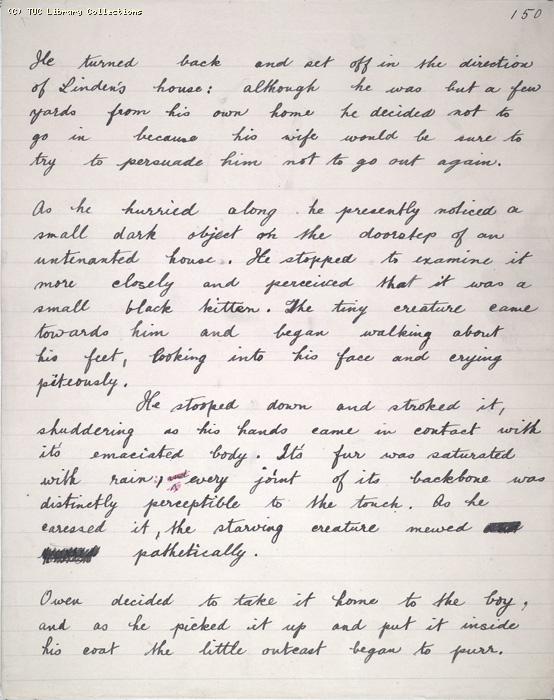 (C) TUC Library Collections
150
He turned back and set off in the direction
of Linden's house: although he was but a few
yards from his own home he decided not to
go in because his wife would be sure to
try to persuade him not to go out again.
As he hurried along he presently noticed a
small dark object on the doorstep of an
untenanted house. He stopped to examine it
more closely and perceived that it was a
small black kitten. The tiny creature came
towards him and began walking about
his feet, looking into his face and crying
piteously.
He stooped down and stroked it,
shuddering as his hands came in contact with
it's emaciated body. It's fur was saturated
with rain; and every joint of its backbone was
distinctly perceptible to the touch. As he
caressed it, the starving creature mewed
pathetically.
Owen decided to take it home to the boy,
and as he picked it up and put it inside
his coat the little outcast began to purr.